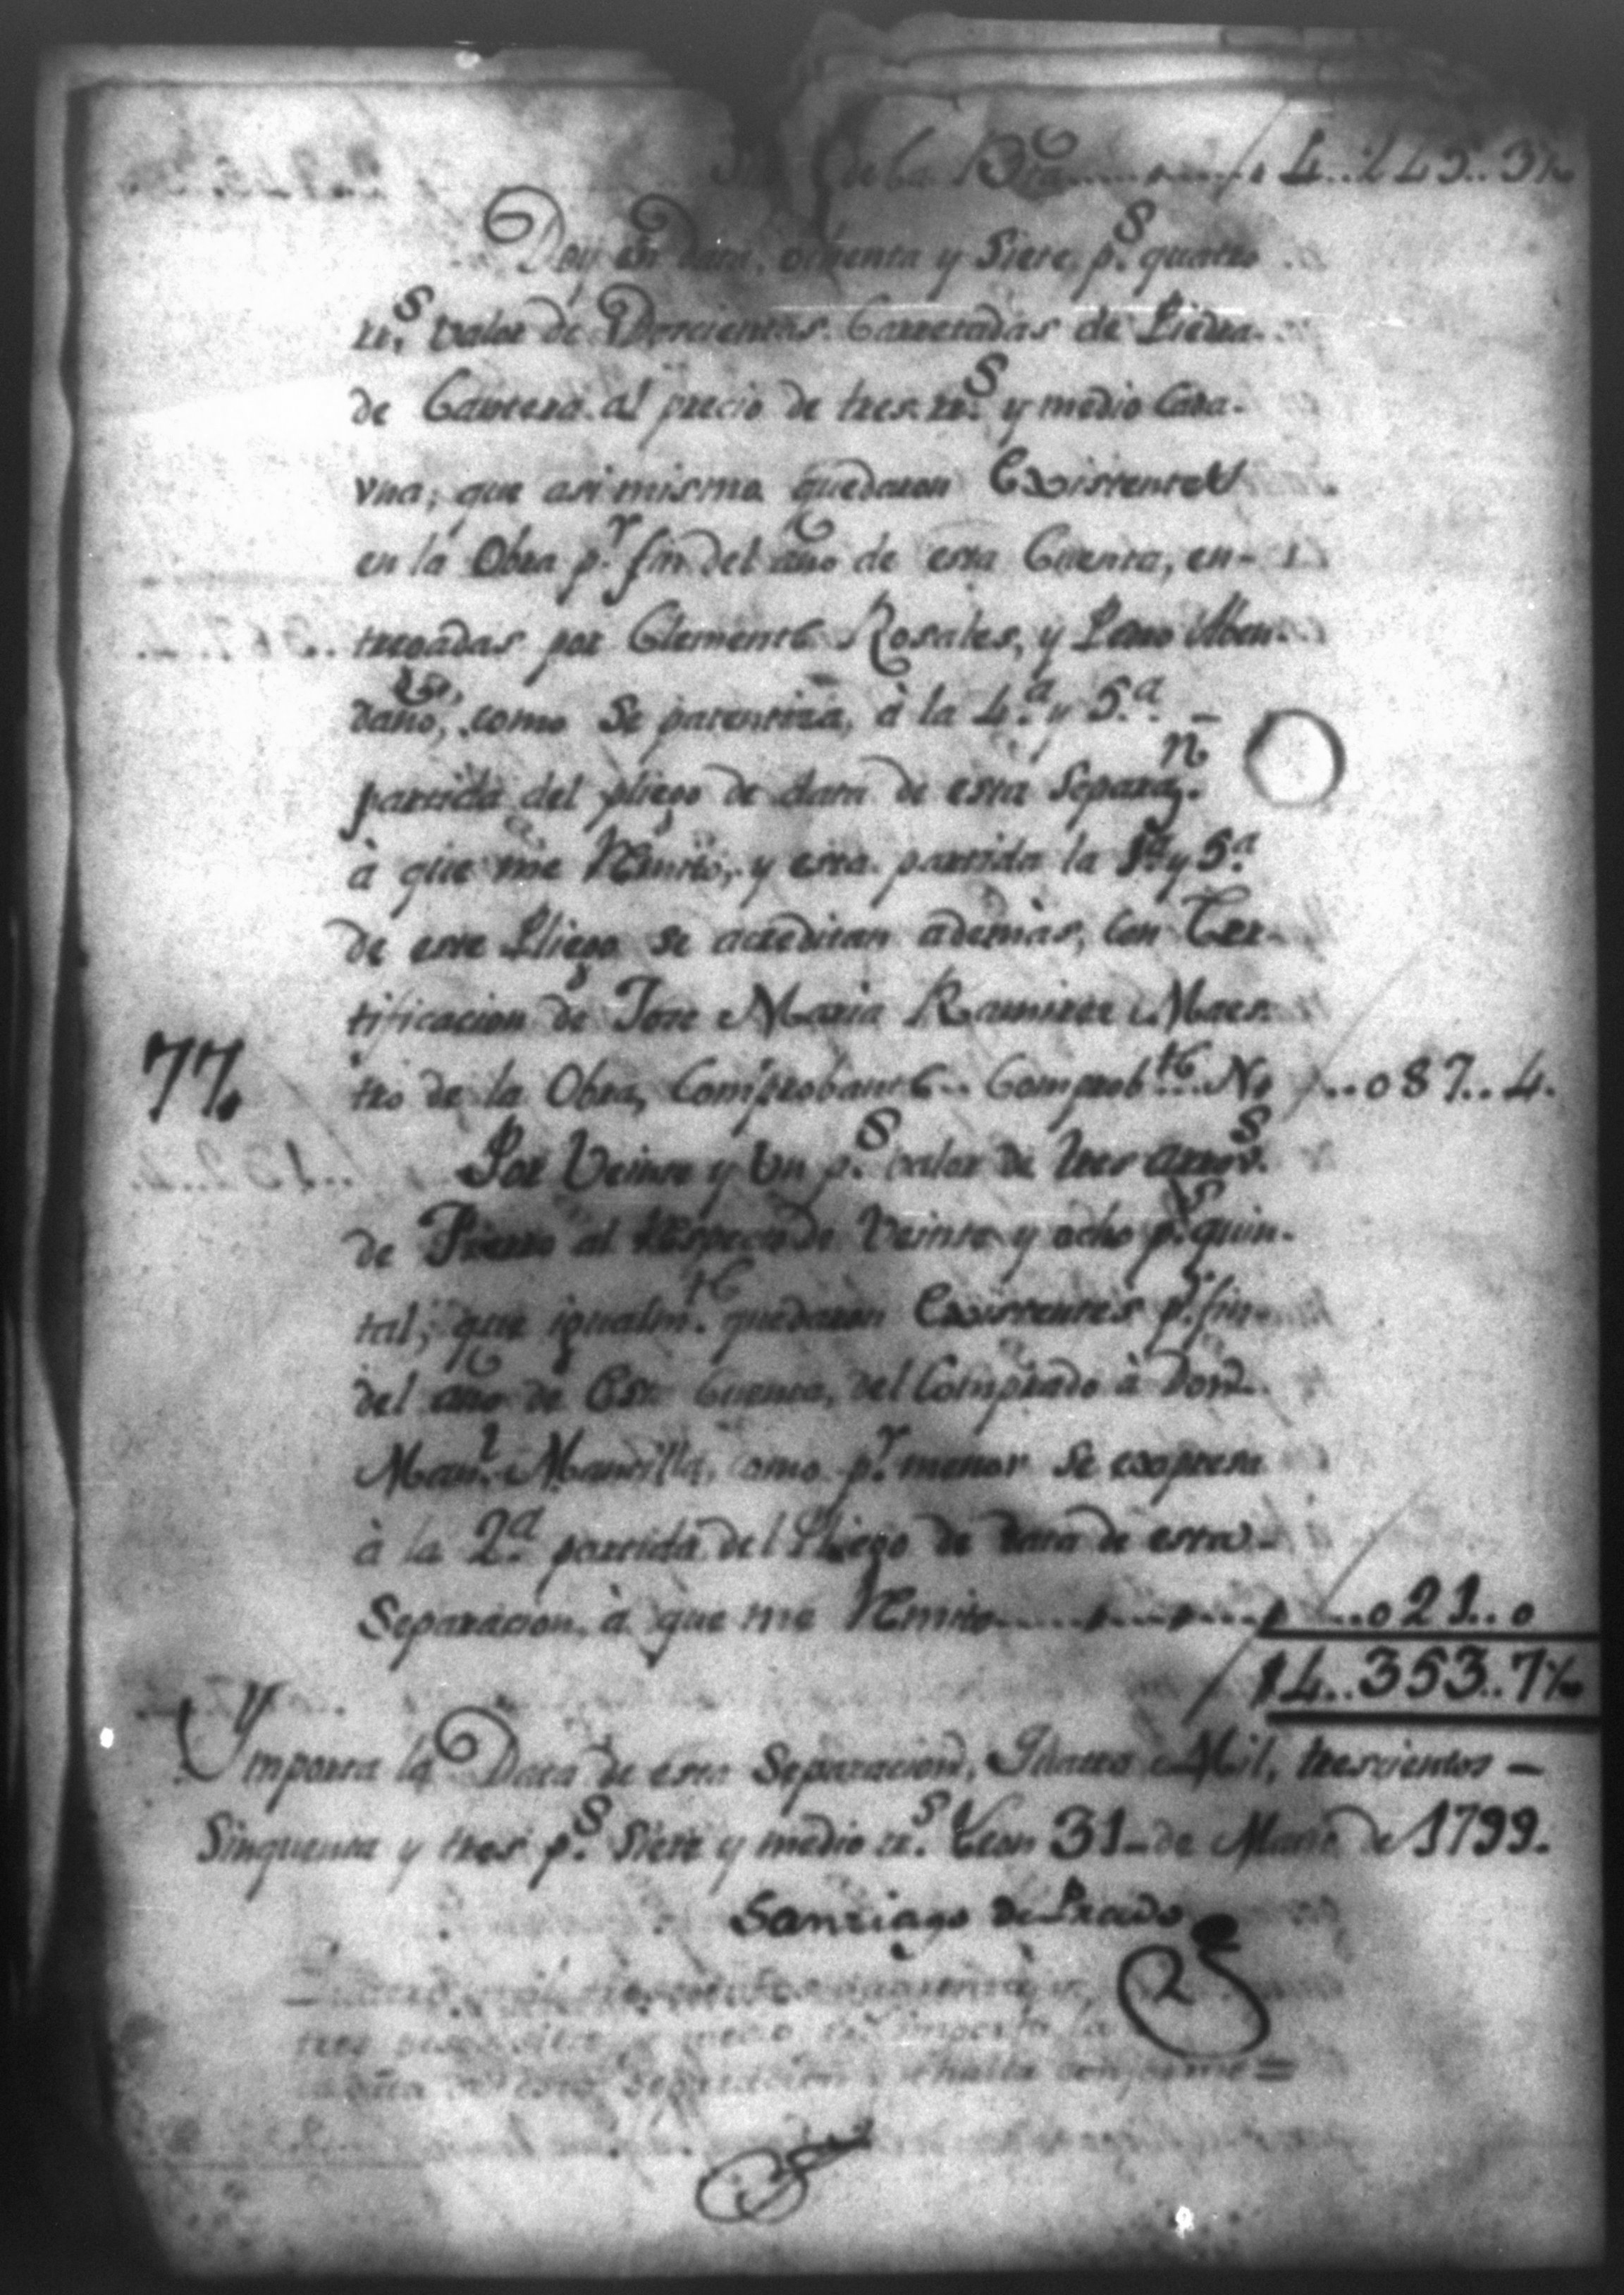 de la B.ta 4..245..3½
Doy en Data, ochenta y Siete p.s quatro
rr.s valor de Dorcientas Carretadas de Piedra
de Cantera al precio de tres rr.s y medio Cada
vna, que asi mismo quedaron Existentes
en la Obra p.r fin del año de esta Cuenta, en-
tregadas por Clemente Rosales, y Pedro Aben-
daño, como Se patentiza, à la 4.a y 5.a -
partida del pliego de data de esta Separaz.n
à que me Remito, y esta partida la 1.a y 5.a
de este Pliego se acreditan ademàs, con Cer-
tificacion de Jose Maria Ramirez Maes-
77. tro de la Obra, Comprobante.. Comprob.te.. No ..087..4.
Por Veinte y Un p.s valor de tres arrov.s
de Fierro al Respecto de Veinte y ocho p.s quin-
tal, que igualm.te quedaron Existentes p.r fin
del año de Esta Cuenta, del Comprado à Don
Man.l Mancilla, como p.r menor se expresa
à la 2.a partida del Pliego de Data de esta
Separacion, à que me Remito ..021..0
$4..353..7½
Ymporta la Data de esta Separacion, Quatro Mil, trescientos -
Sinquenta y tres p.s Siete y medio rr.s Leon 31 de Marzo de 1799.
Santiago de Prado
Quatro mil trescientos sinquenta y
tres pesos siete y medio rr.s importa la
data de esta Separacion y se halla conforme =